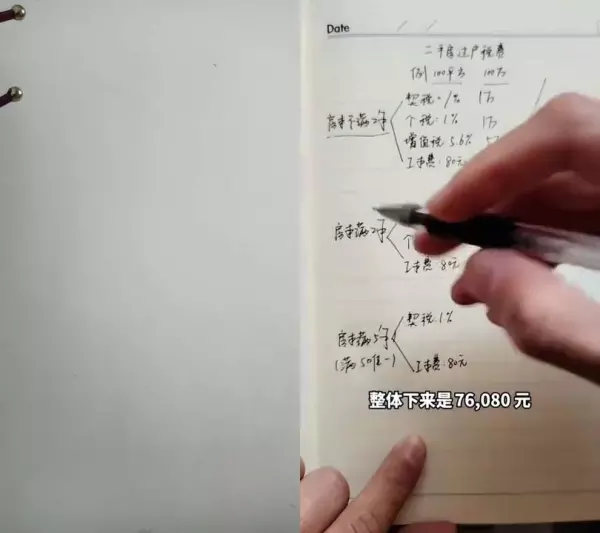 Date
二手房过户税费
例 100平方 100万
房本不满2年
契税:1% 1万
个税:1% 1万
增值税 5.6% 5
工本费:80元
房本满2年
个
工本费:80元
房本满5年
(满5唯一)
契税 1%
工本费:80元
整体下来是 76,080 元